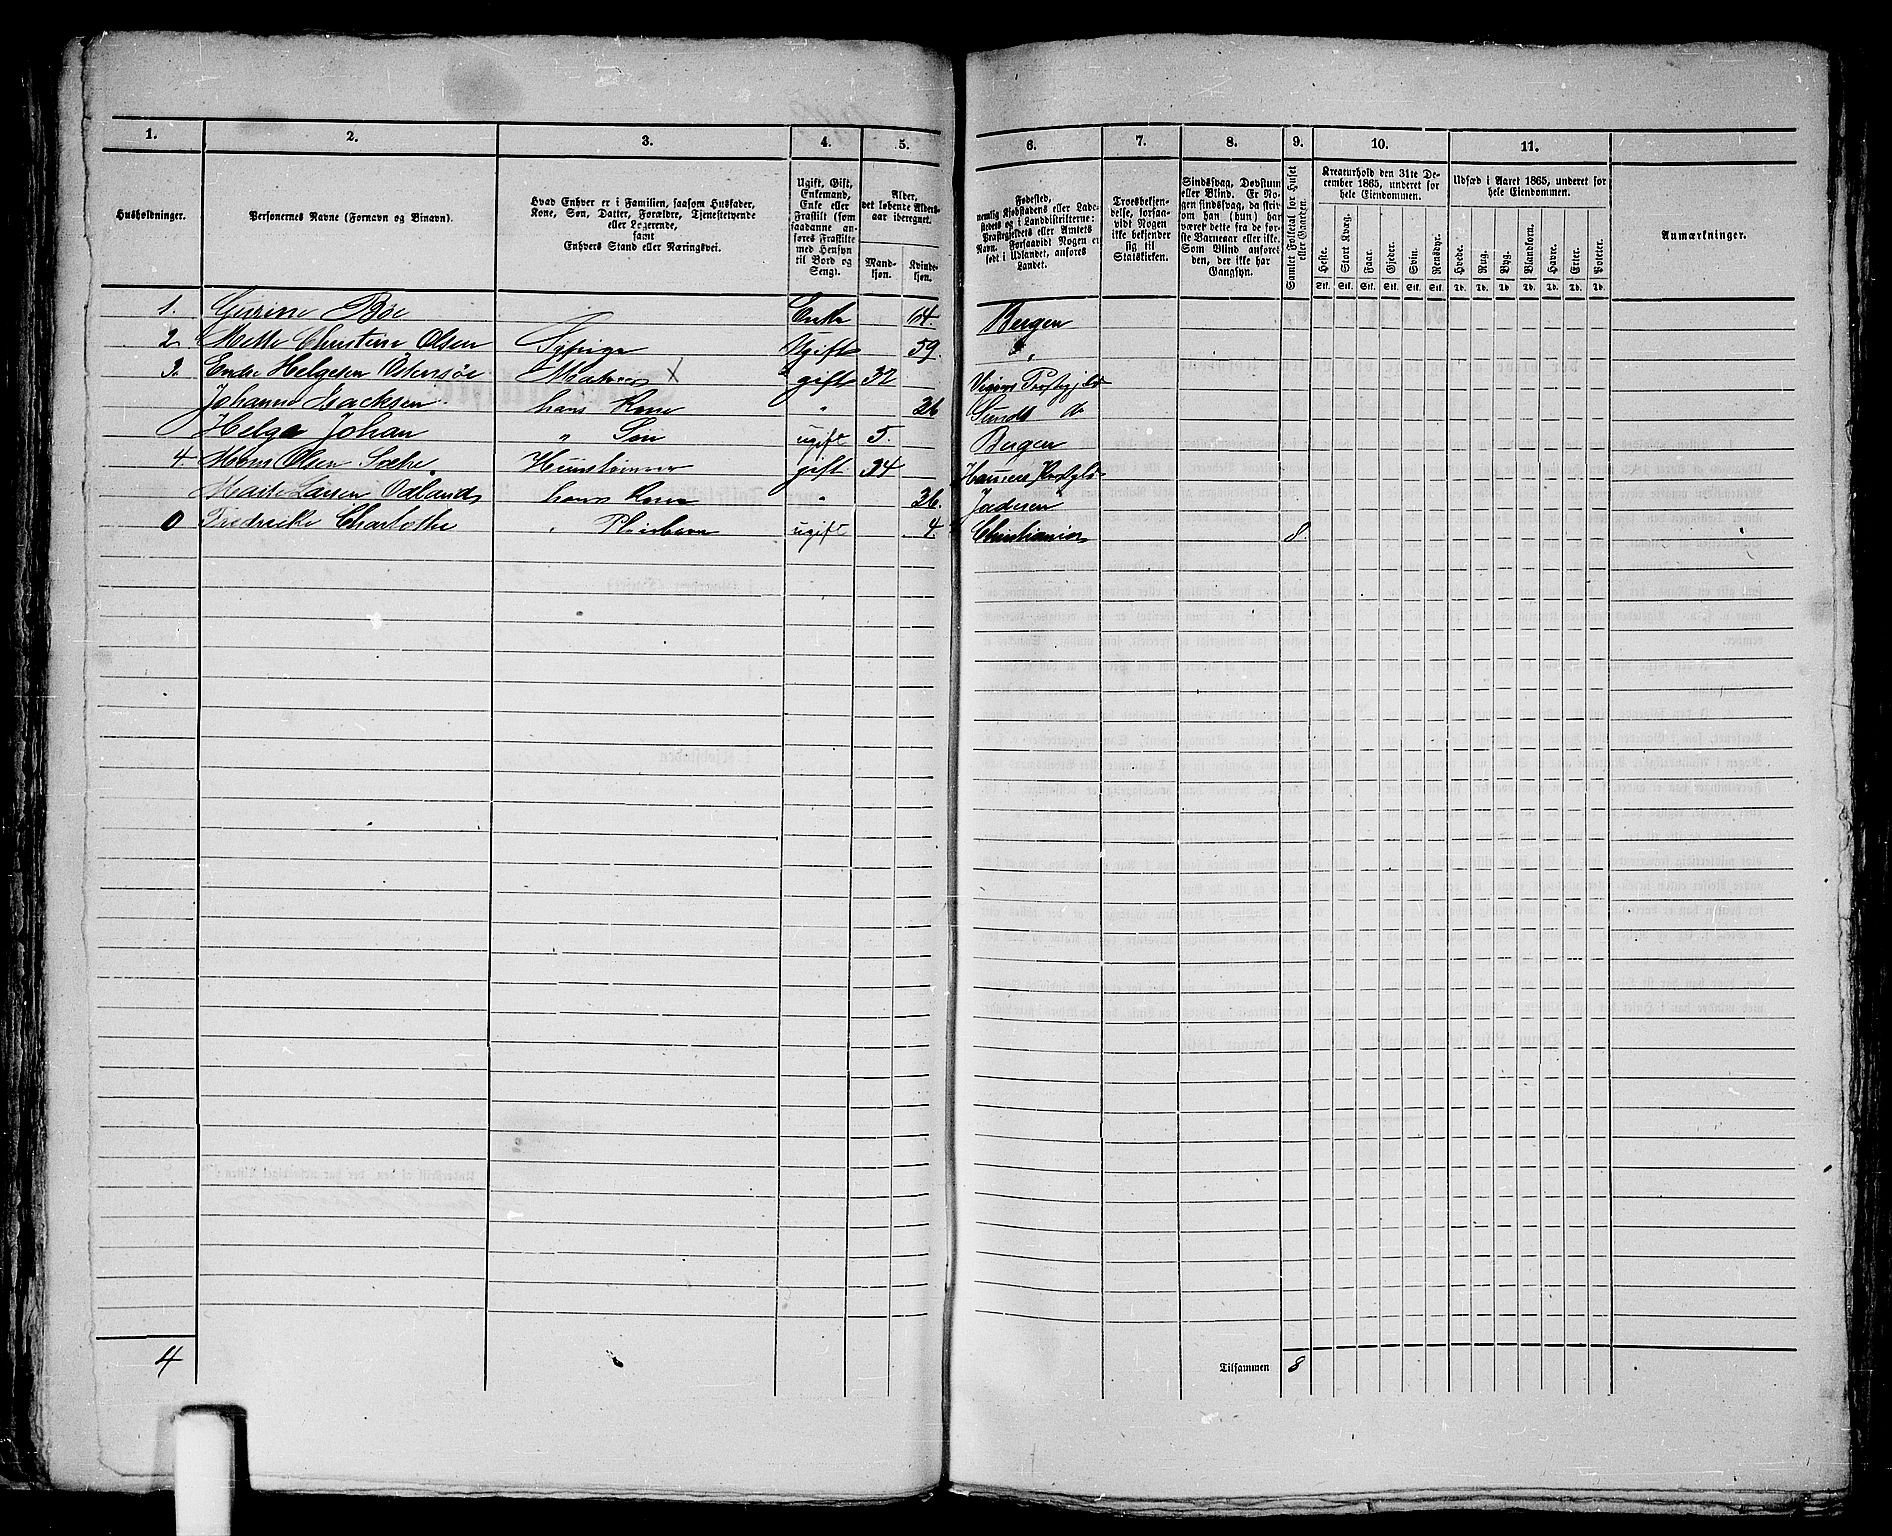 1. 2. 3. 4. 5. 6. 7. 8. 9. 10. 11.
Husholdninger.
Personernes Navne (Fornavn og Binavn).
Hvad Enhver er i Familien, saasom Husfader,
Kone, Søn, Datter, Forældre, Tjenestetyende
eller Logerende,
samt
Enhvers Stand eller Næringsvei.
Ugift, Gift,
Enkemand,
Enke eller
Fraskilt (som
saadanne an-
føres Fraskilte
med Hensyn
til Bord og
Seng).
Alder,
det løbende Alders-
aar iberegnet.
Mand-
kjøn.
Kvinde-
kjøn.
Fødested,
nemlig Kjøbstadens eller Lade-
stedets og i Landdistrikterne:
Præstegjeldets eller Amtets
Navn. Forsaavidt Nogen er
født i Udlandet, anføres
Landet.
Troesbekjen-
delse, forsaa-
vidt Nogen
ikke bekjender
sig til
Statskirken.
Sindssvag, Døvstum
eller Blind. Er No-
gen sindssvag, da skriv
om han (hun) har
været dette fra de før-
ste Barneaar eller ikke.
Som Blind anføres
den, der ikke har
Gangsyn.
Samlet Folketal for Huset
eller Gaarden.
Kreaturhold den 31te De-
cember 1865, underet for
hele Eiendommen.
Heste. Stort Kvæg. Faar. Gjeder. Svin. Rensdyr.
Stk. Stk. Stk. Stk. Stk. Stk.
Udsæd i Aaret 1865, underet for
hele Eiendommen.
Hvede. Rug. Byg. Blandkorn. Havre. Erter. Poteter.
Td. Td. Td. Td. Td. Td. Td.
Anmærkninger.
1. Gurine Bøe Enke 64. Bergen
2. Mette Christine Olsen Ugift 59. "
3. Helgesen gift 32
Johanne Isachsen hans Kone " 36 Sunds do
Helge Johan " Søn ugift 5. Bergen
4. Mons Olsen Huustømmer gift 34
Larsen hans Kone " 36. Jæderen
0 Fredrikke Charlotte " Pleiebarn ugift 4. Christiania 8
4
Tilsammen 8